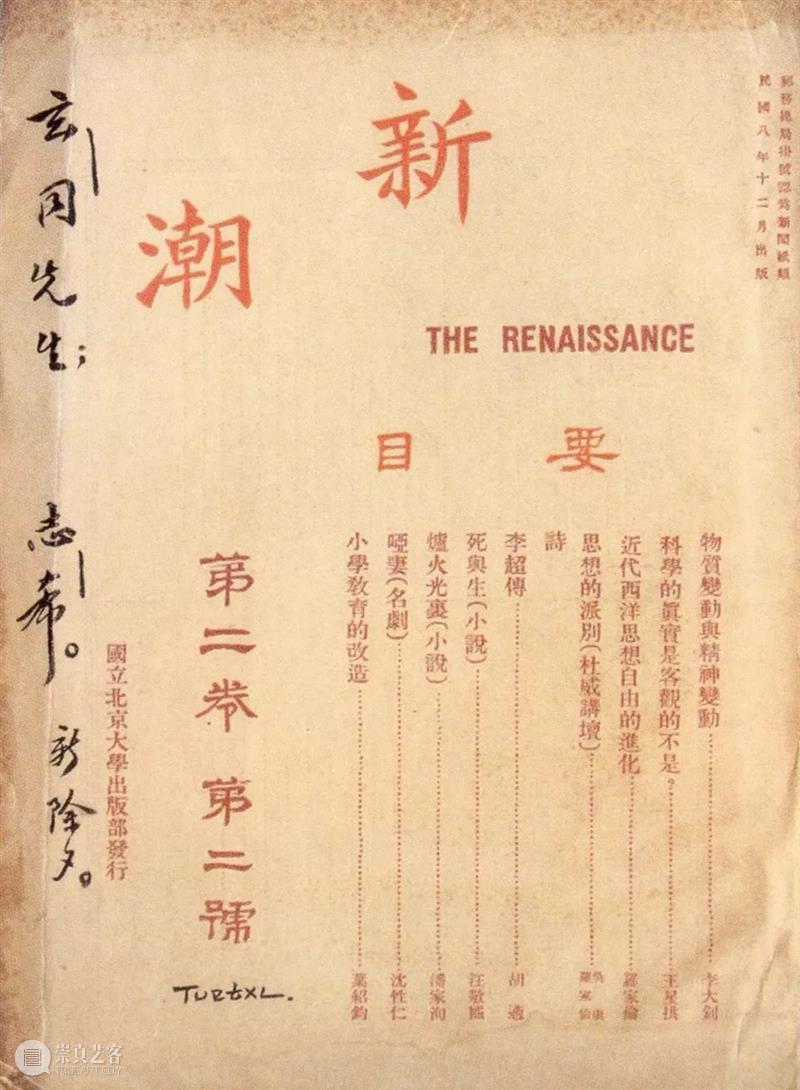 郵務總局掛號認爲新聞紙類
民國八年十二月出版
新潮
THE RENAISSANCE
要目
物質變動與精神變動 李大釗
科學的眞實是客觀的不是? 王星拱
近代西洋思想自由的進化 羅家倫
思想的派別(杜威講壇) 吳康 羅家倫
詩
李超傳 胡適
死與生(小說) 汪敬熙
爐火光裏(小說) 潘家洵
啞妻(名劇) 沈性仁
小學敎育的改造 葉紹鈞
第二卷第二號
國立北京大學出版部發行
玄同先生;
志希。
新除夕。
崇真艺客
WWW.TRUEART.COM